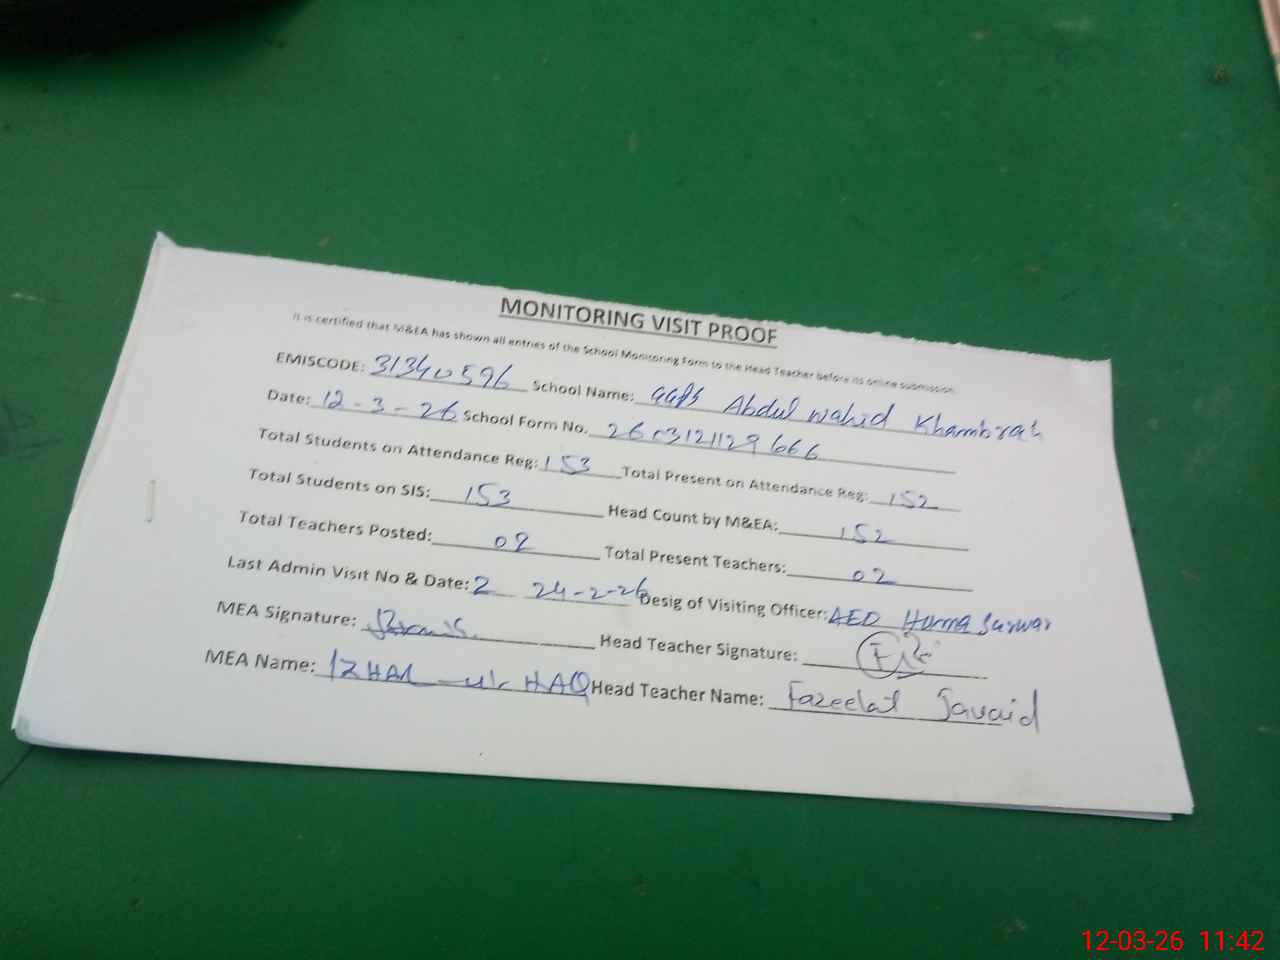 MONITORING VISIT PROOF
It is certified that M&EA has shown all entries of the School Monitoring Form to the Head Teacher before its online submission.
EMISCODE: 31340596 School Name: GGPS Abdul Wahid Khambrah
Date: 12-3-26 School Form No. 2603121129666
Total Students on Attendance Reg: 153 Total Present on Attendance Reg: 152
Total Students on SIS: 153 Head Count by M&EA: 152
Total Teachers Posted: 02 Total Present Teachers: 02
Last Admin Visit No & Date: 2 24-2-26 Desig of Visiting Officer: AEO Huma Sarwar
MEA Signature: Head Teacher Signature:
MEA Name: IZHAR ul HAQ Head Teacher Name: Fazeelat Javaid
12-03-26 11:42